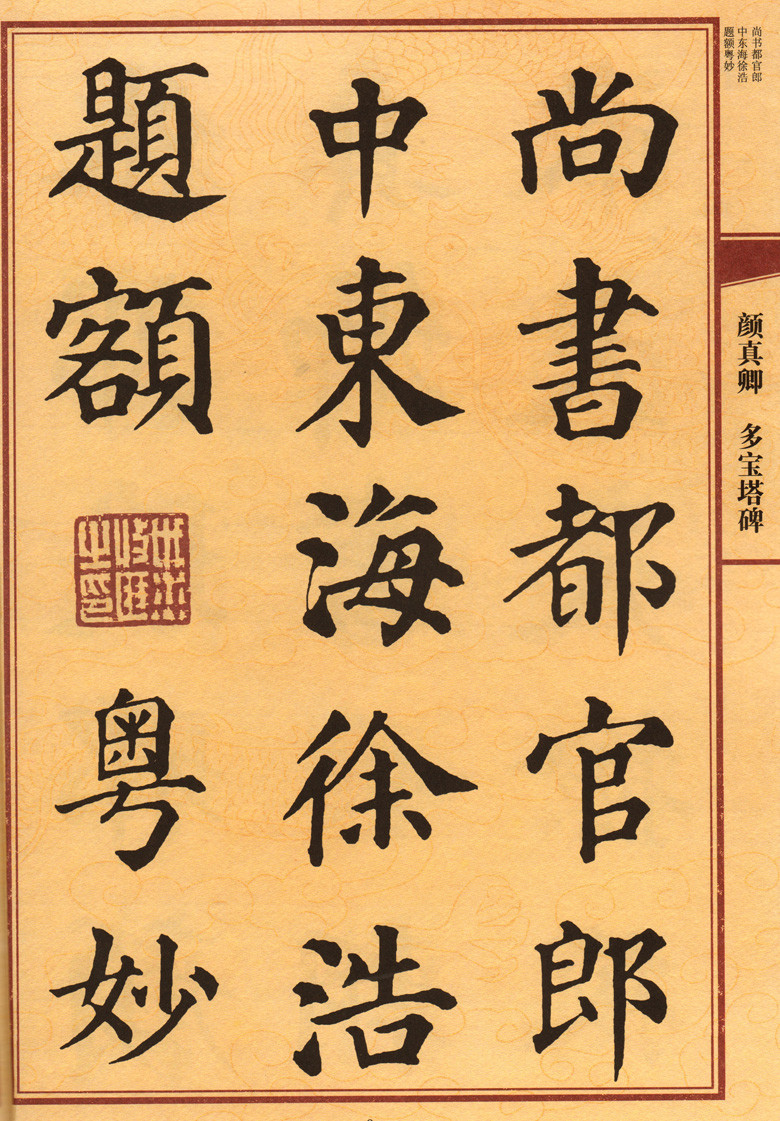 尚書都官郎
中東海徐浩
題額粤妙
尚书都官郎
中东海徐浩
题额粤妙
颜真卿 多宝塔碑